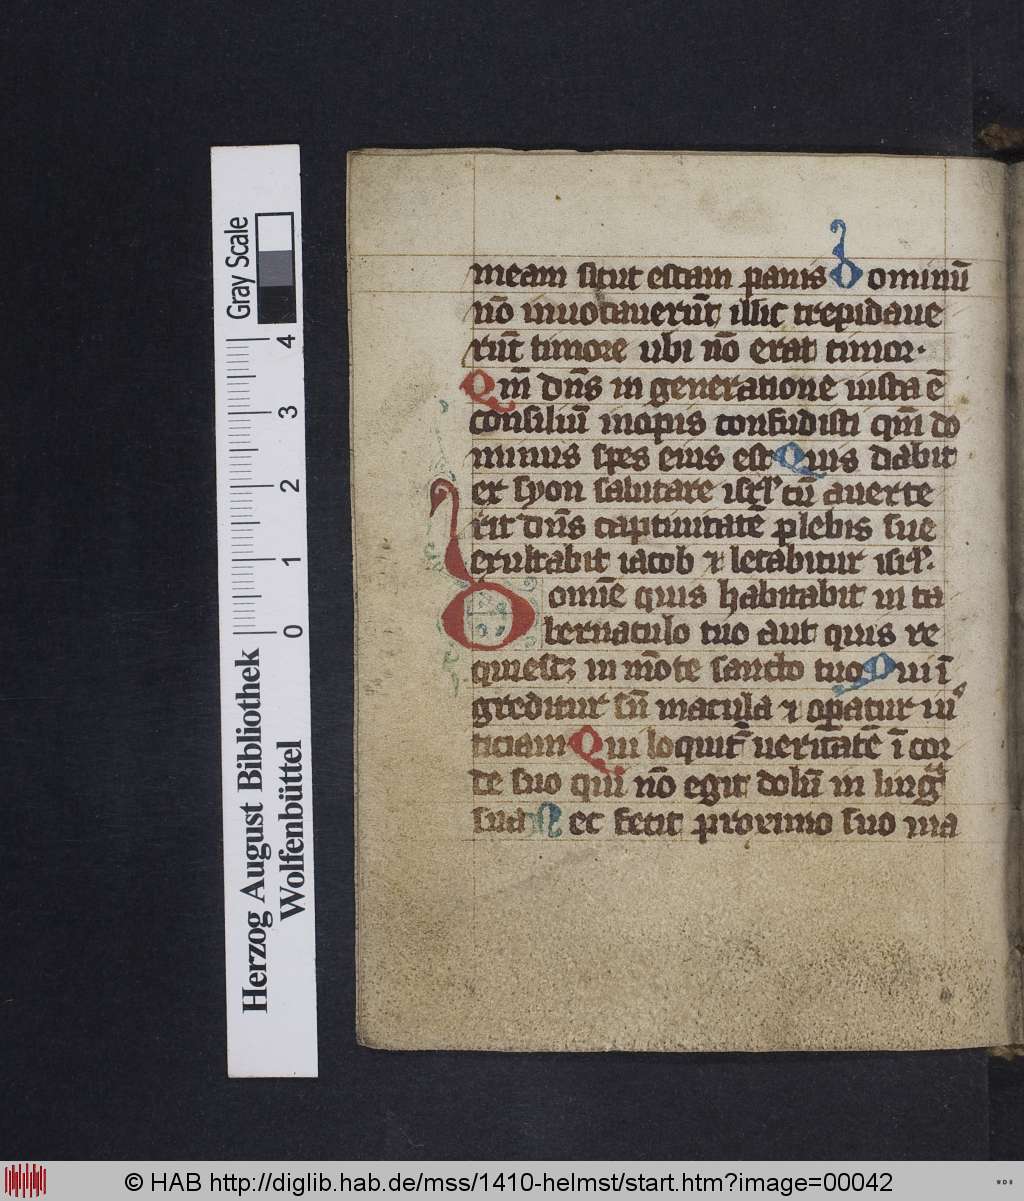 Gray Scale
4
3
2
1
0
Herzog August Bibliothek
Wolfenbüttel
meam sicut escam panis Dominū
nō inuocauerūt illic trepidaue
rūt timore ubi nō erat timor·
Qm̄ dn̄s in generatione iusta ē
consiliū inopis confudisti qm̄ do
minus spes eius est Quis dabit
ex syon salutare isrl̓ cū auerte
rit dn̄s captiuitatē plebis sue
exultabit iacob ⁊ letabitur isrl̓·
Domīe quis habitabit in ta
bernaculo tuo aut quis re
quiescꝫ in mōte sancto tuo Qui ī
greditur sn̄ macula ⁊ oꝑatur ius
ticiam Qui loquit᷑ ueritatē ī cor
de suo qui nō egit dolū in lingᷓ
sua Nec fecit proximo suo ma
© HAB http://diglib.hab.de/mss/1410-helmst/start.htm?image=00042